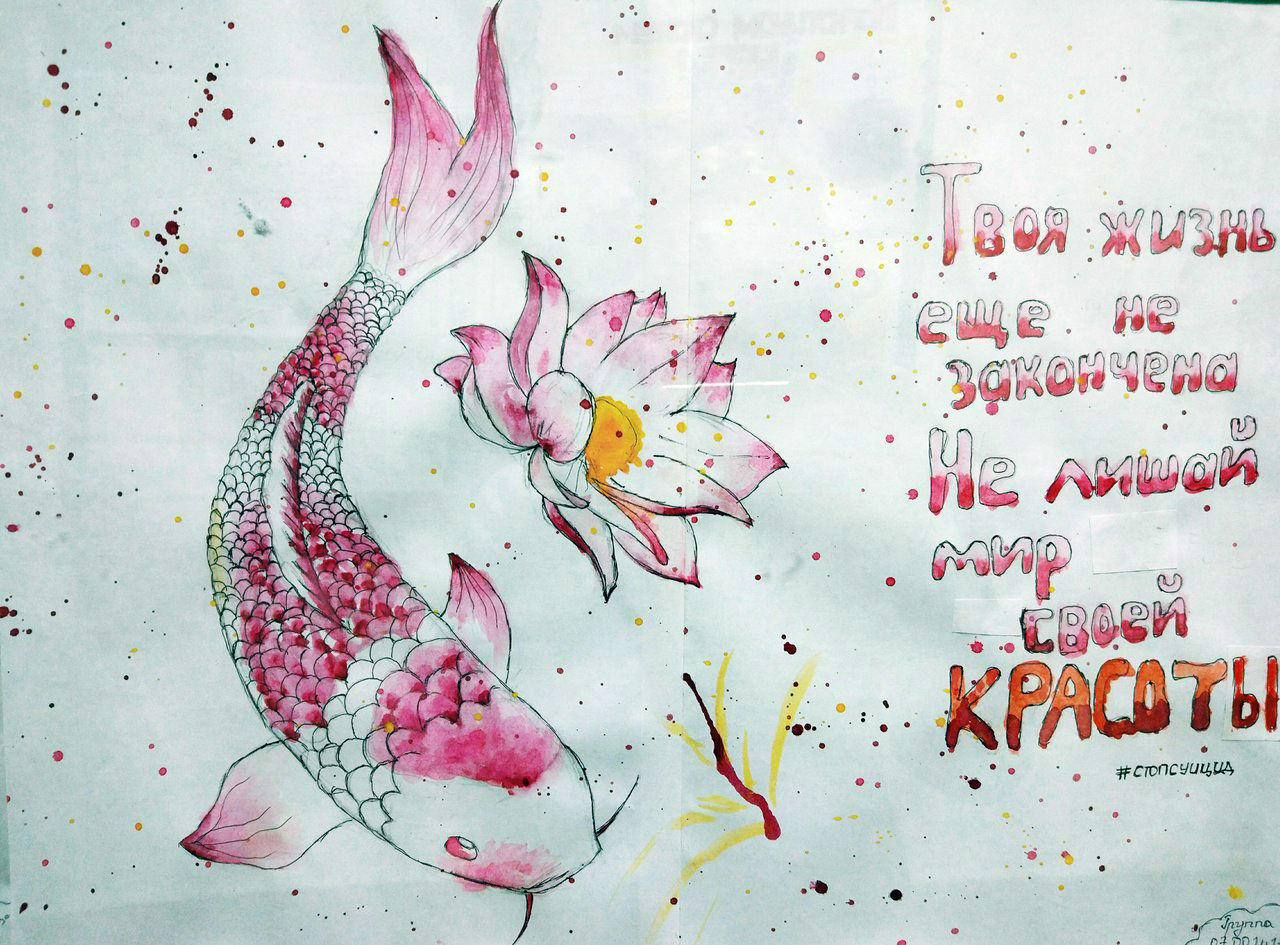 Твоя жизнь
еще не
закончена
Не лишай
мир
своей
КРАСОТЫ
#СТОПСУИЦИД
Группа